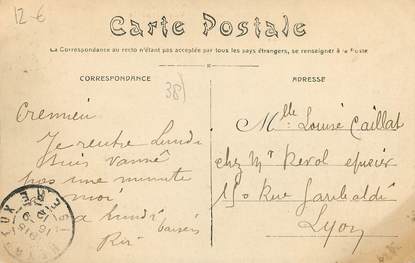 12-6
Carte Postale
La Correspondance au recto n'étant pas acceptée par tous les pays étrangers, se renseigner à la Poste
CORRESPONDANCE
38)
Cremieu
Je rentre Lundi
suis vanné
pas une minute
à moi
a lundi baisers
ADRESSE
Mlle Louise Caillat
chez Mr Revol épicier
150 Rue Garibaldi
Lyon